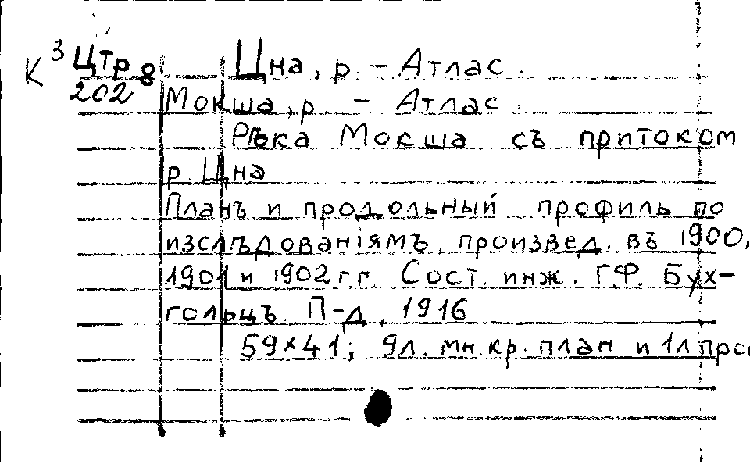 К 3 Цтр 8 Цна, р. – Атлас.
202 Мокша, р. – Атлас.
Рѣка Мокша съ притоком
р. Цна
Планъ и продольный профиль по
изслѣдованіямъ, произвед. въ 1900,
1901 и 1902 г.г. Сост. инж. Г.Ф. Бух-
гольцъ. П-д, 1916
59×41; 9л. мн. кр. план и 1л про